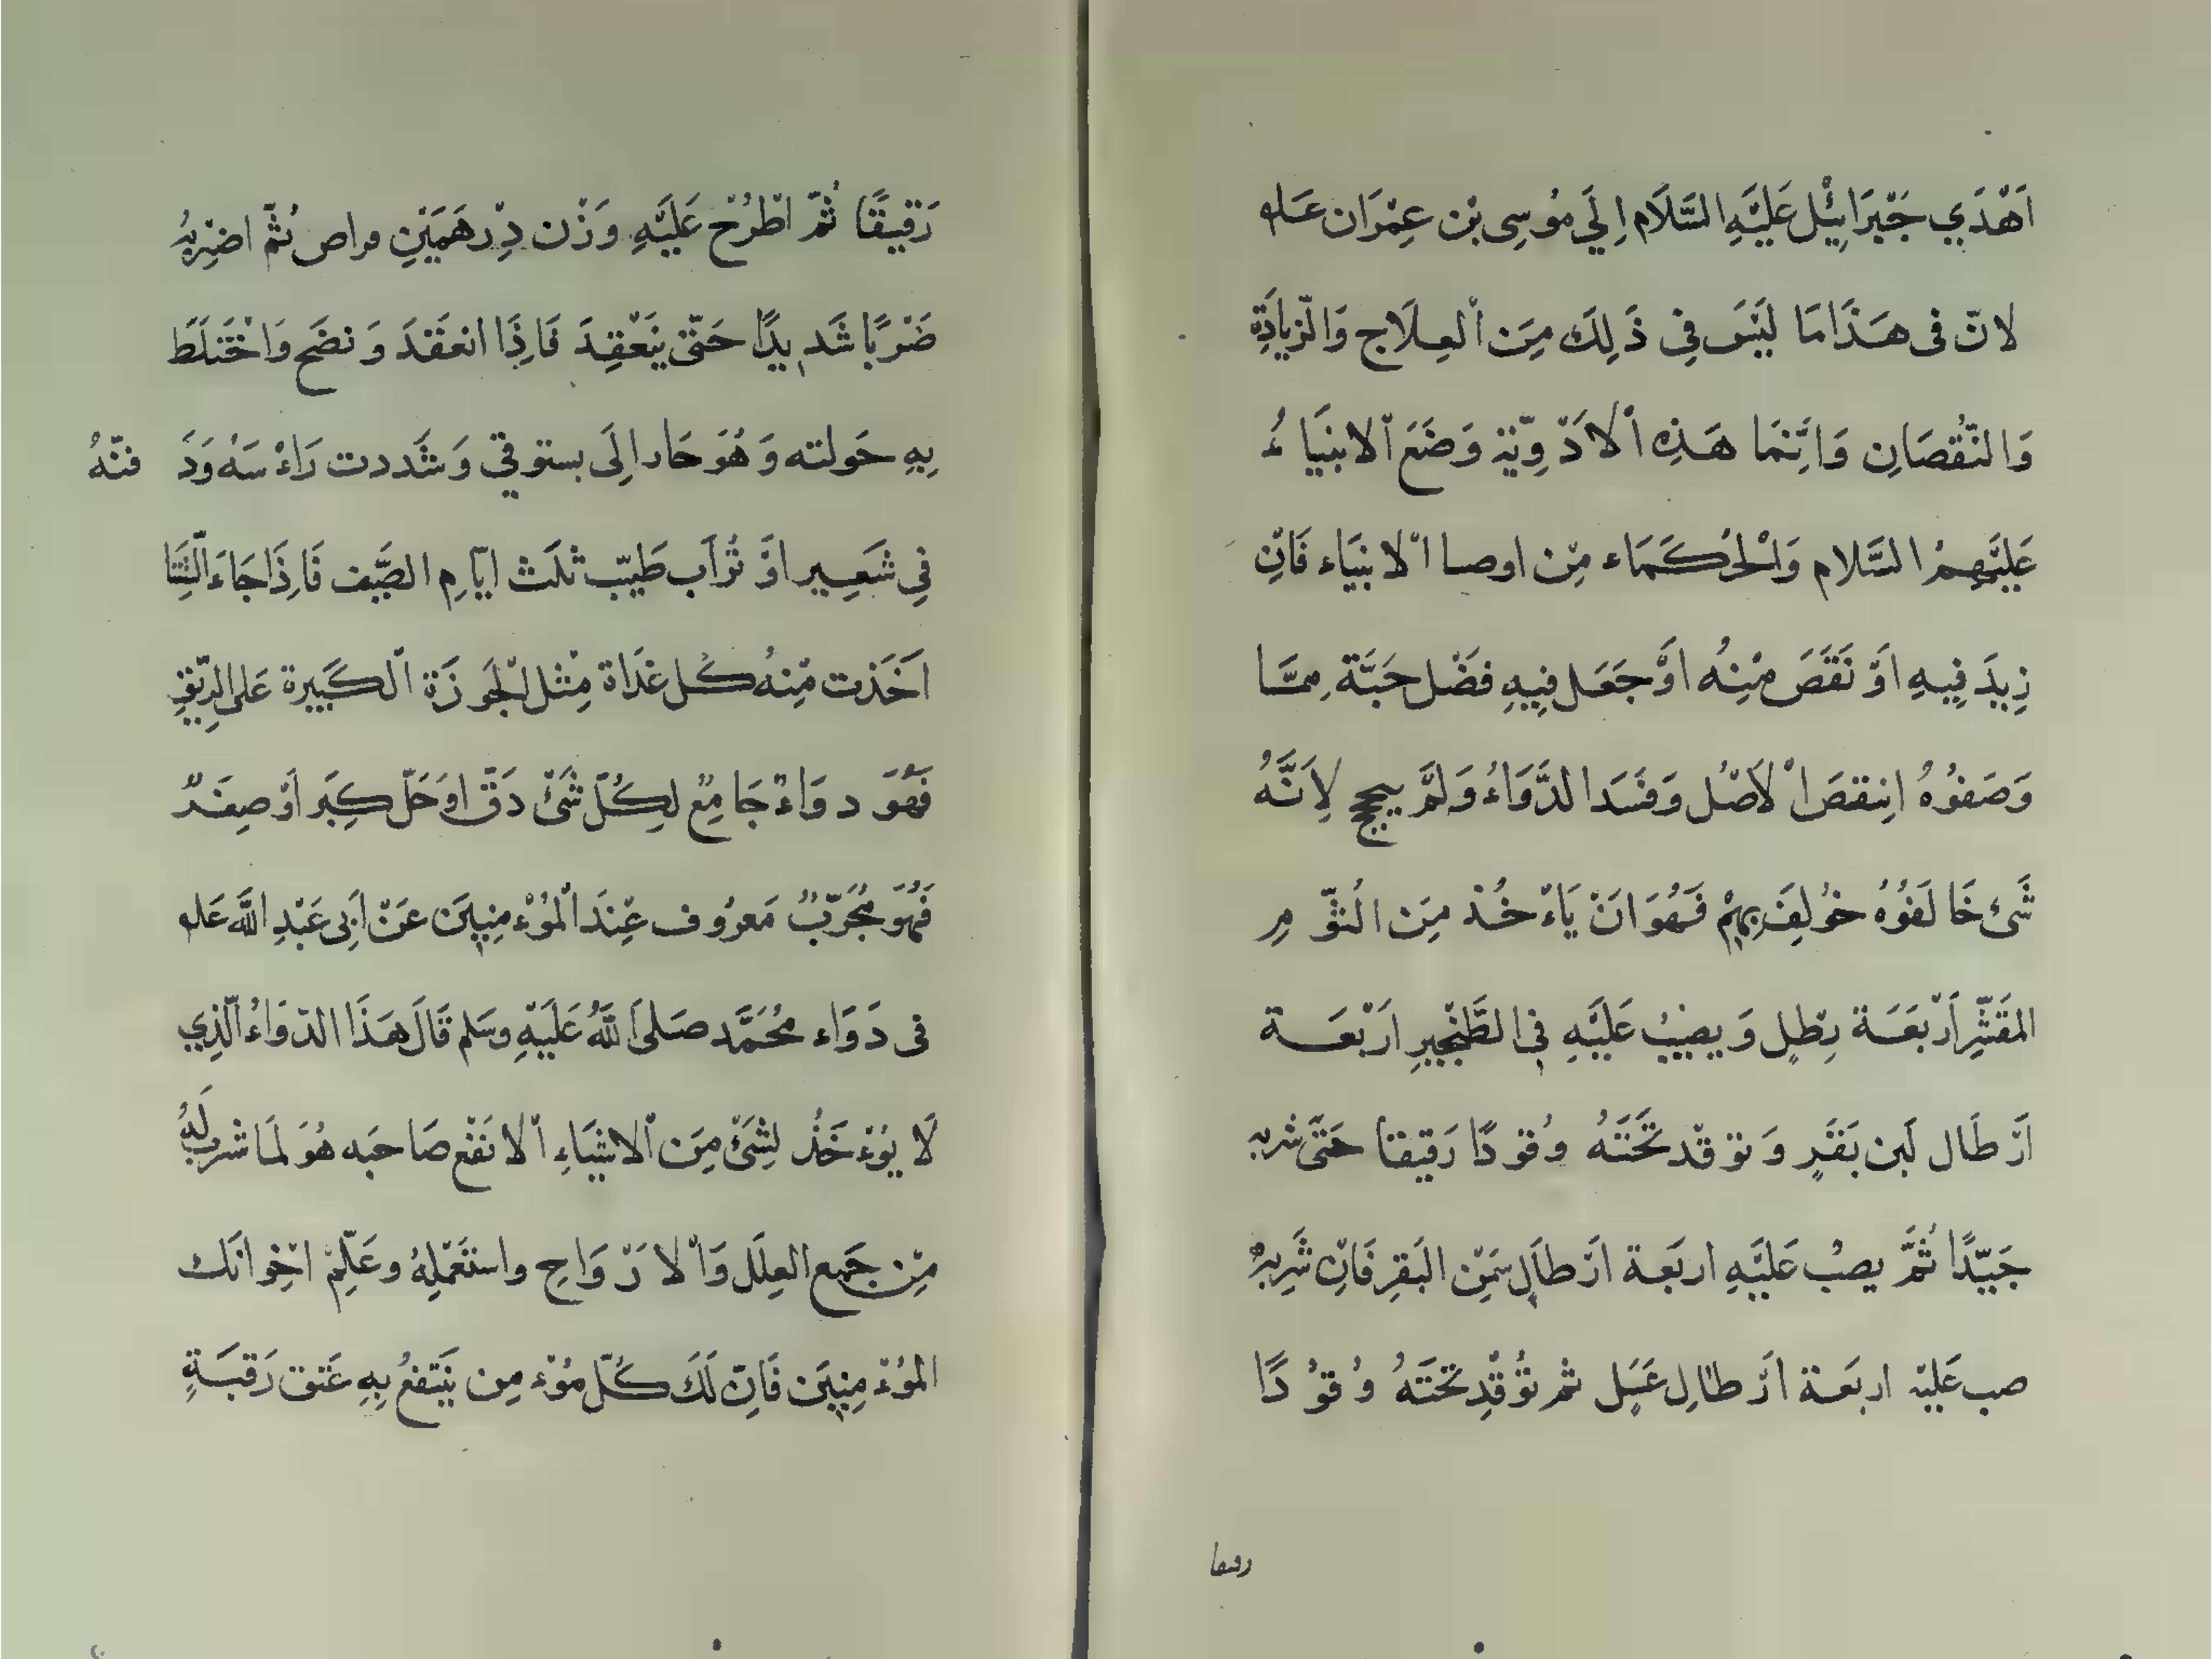 اَهْدَي جَبْرَائِيْل عَلَيْهِ السَّلَام اِلَي مُوسِى بْن عِمْرَان عَلـ
لانّ فى هَذَا مَا لَيْسَ فِى ذَلِكَ مِنَ اْلعِلَاج وَالزيَادَةِ
وَالنّقُصَانِ وَاِنَّمَا هَذِهِ اْلادْوِيّة وَضَعَ اْلانبيَاءُ
عَلَيْهِمُ السَّلام وَاْلحُكَمَاء مِنْ اوصا اْلانبيَاء فَاِنّ
زِيدَ فِيهِ اَوْ نَقَصَ مِنْهُ اَوْ جَعَل فِيهِ فَضْل حَبَّة مِمَّا
وَصَفُوهُ اِنتقصَ اْلاَصْل وَفَسَد الدَّوَاءُ وَلَمْ ينجح لِاَنَّهُ
شَئ خَالَفوُهُ خوُلِفَ بِهِمْ فَهُوَ اَنْ يَاءْخُذ مِنَ الثّوْمِ
المقَشّرِ اَرْبَعَة رِطْلٍ وَيصُبُ عَلَيْهِ فِى الطَّنْجِيرِ اَرْبَعَة
اَرْطَال لَبن بَقَرٍ وَتوقْد تَحْتَهُ وُقودًا رَقيقا حَتّى شربه
جَيّدًا ثُمَّ يصبُ عَلَيْهِ اربَعة اَرْطالٍ سَمْن البَقرِ فَاِنْ شَرِبهُ
صب عَليْه اربَعة اَرْطالِ عَسَل ثم تُوْقِد تَحْتَهُ وُقوُدًا
رقيقا
رَقِيقًا ثُمّ اطْرُحْ عَلَيْهِ وَزْن دِرْهَمَيْنِ مراص ثُمّ اضْرِبهُ
ضَرْبًا شَدِيدًا حَتّى يَنْعَقِدَ فَاِذَا انعَقدَ وَنضَح وَاخْتَلَطَ
بِهِ حَولته وَهُوَ حَار اِلَى بستوقى وَشَددت رَاءْسَهُ وَدَفنْهُ
فِي شَعِير اوْ تُرَاب طَيّب ثَلَث ايّامِ الصَّيف فَاِذَا جَاءَ الشِّتَا
اَخَذت مِنهُ كُل غدَاة مِثل اْلجَوزَة اْلكَبِيرة عَلى الرّيْقِ
فَهُوَ دوَاءْ جَامِعٌ لِكُلّ شَئْ دَقّ اوَ حَلّ كبِر اَوْ صِغَر
فَهُوَ مُجَرّبٌ مَعرُوف عِنْدَ اْلمُوءْمِنِيْنَ عَنْ اَبِى عَبْدِ اللَّه عَلـ
فى دَوَاء مُحَمَّد صَلى اَللهُ عَلَيْهِ وسَلم قَالَ هَذَا الدّوَاءُ الّذِي
لَا يوُءْخَذ لِشَئْ مِنَ اْلاشْيَاءِ اْلا نَفْع صَاحبَه هُوَ لمَا شرب لَهُ
مِنْ جَمِيع العِلَل وَاْلارْوَاح واستَعْمِلهُ وعَلّمْ اخْوانَك
المُوءْمِنِينَ فَاِنّ لَكَ كُلّ مُوْءمِن يَنتفعُ بِهِ عَتق رَقبَةٍ